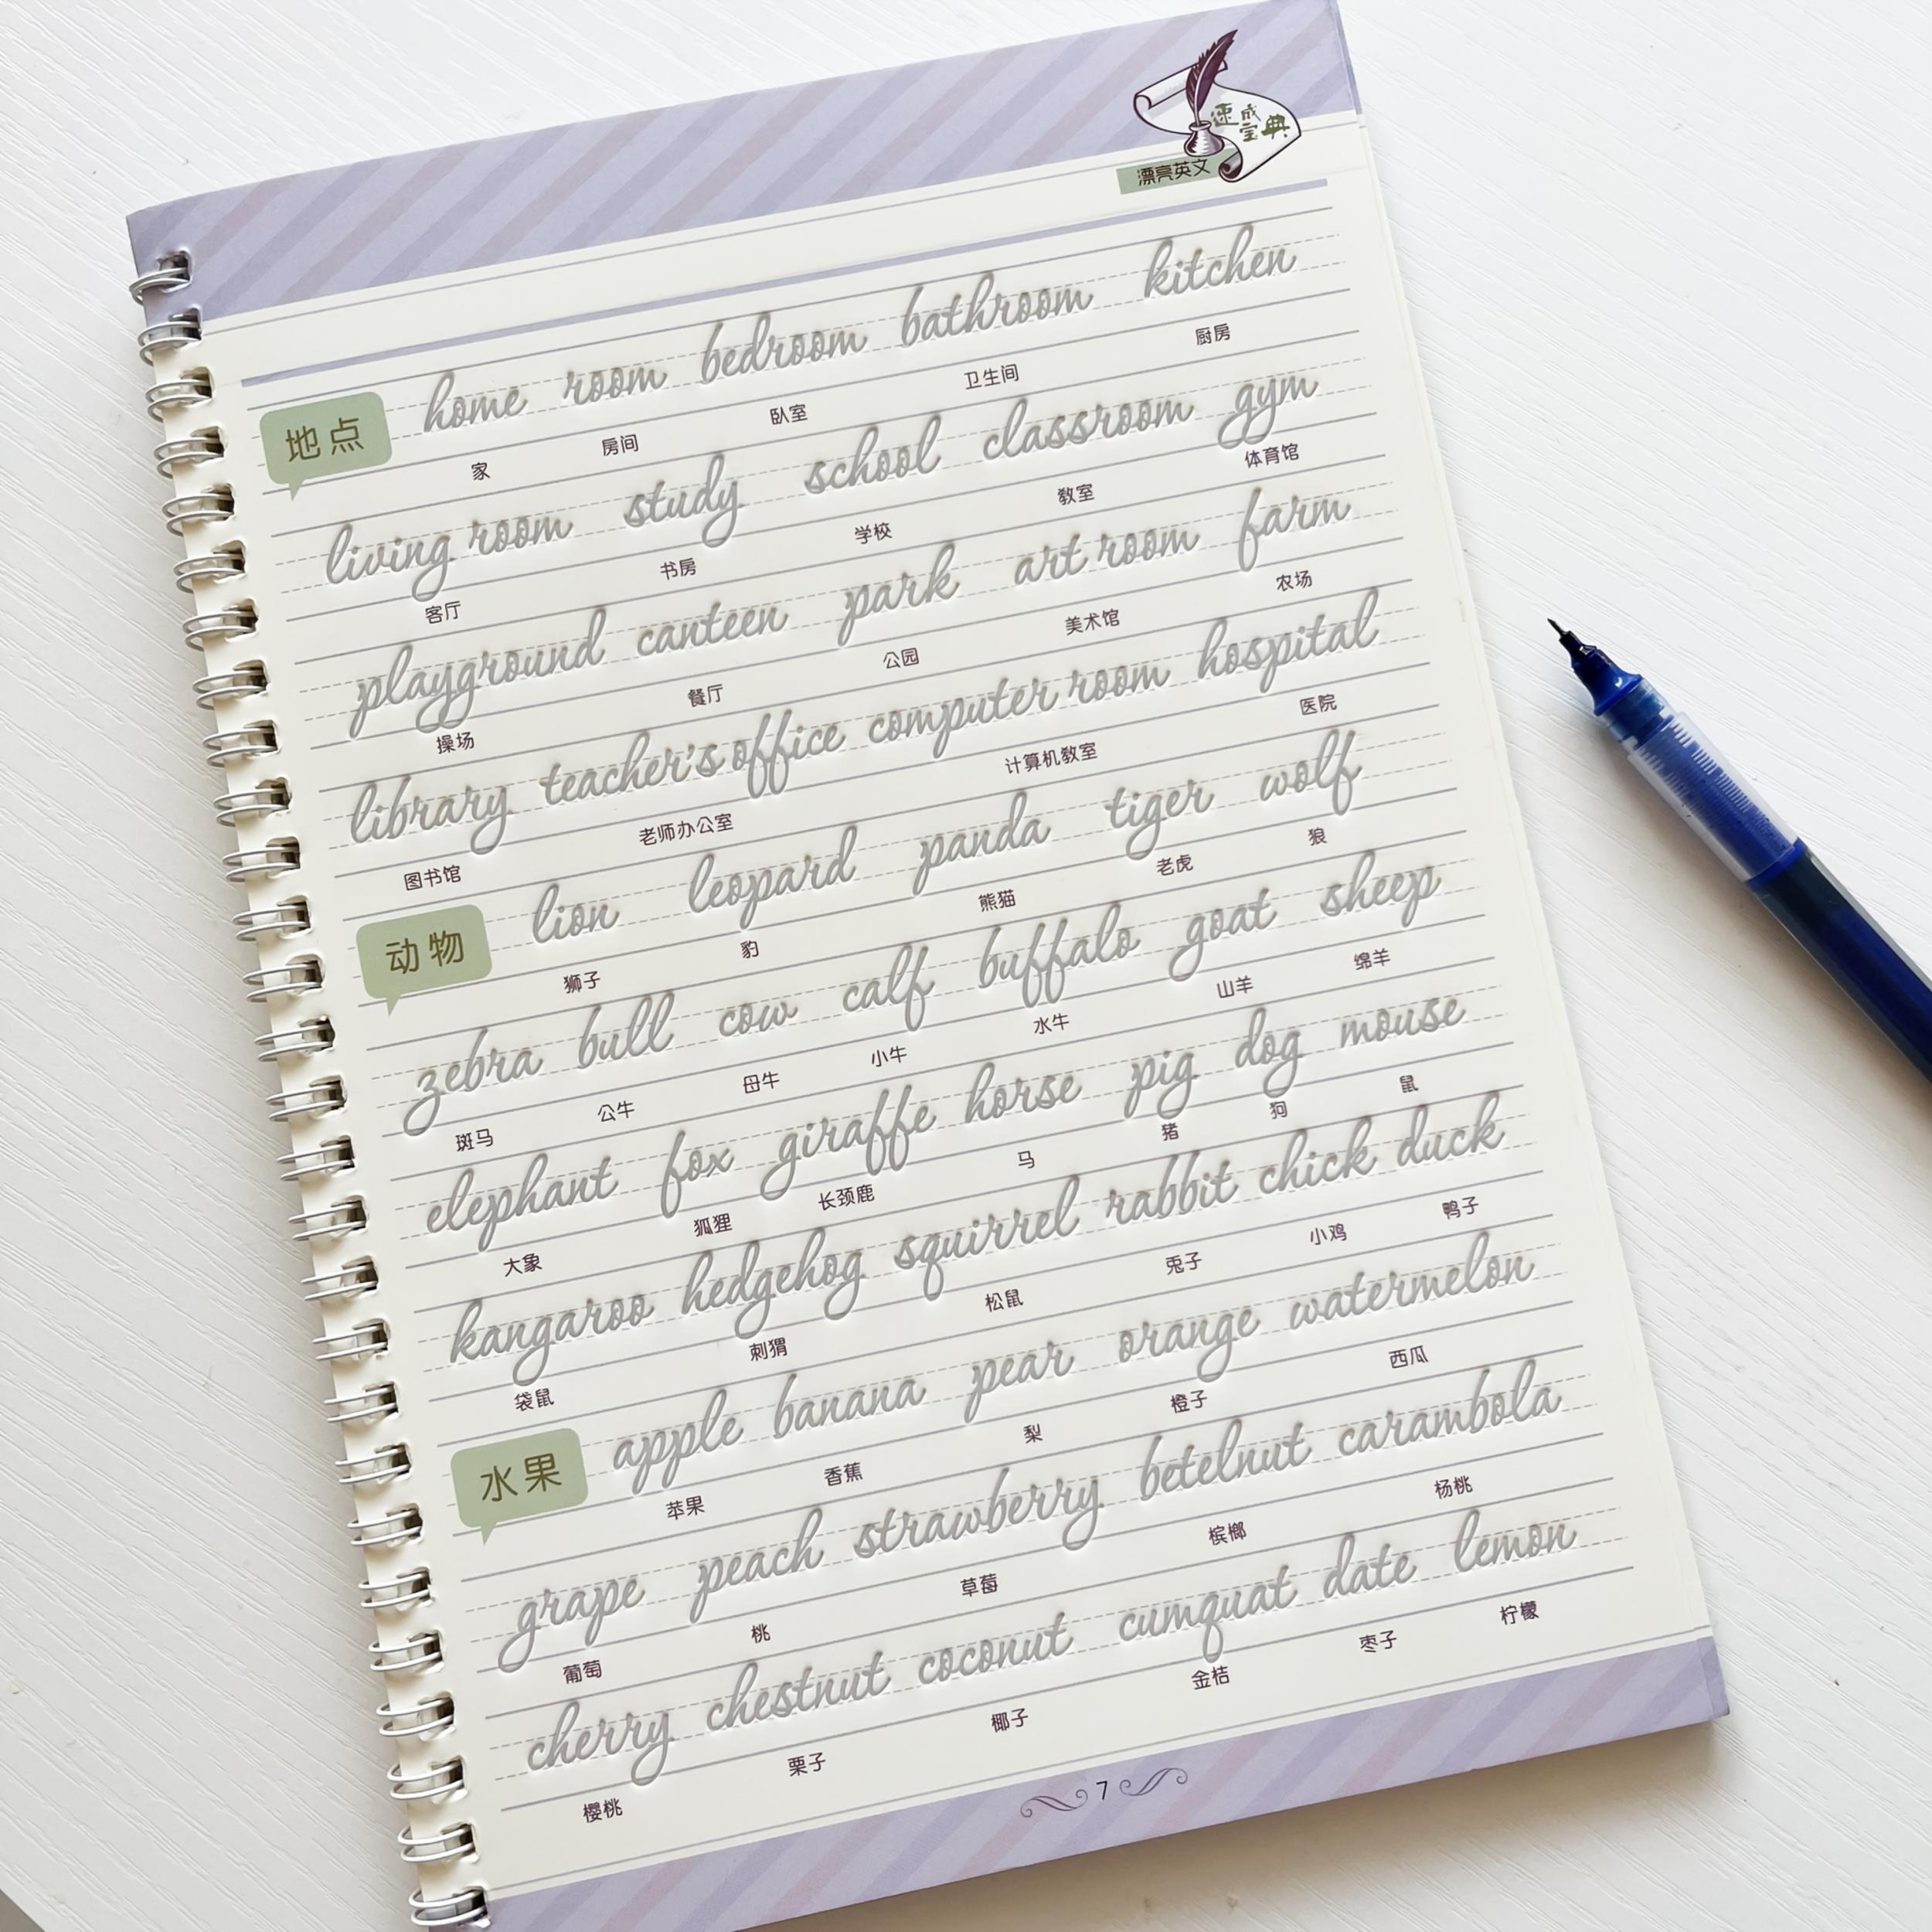 速成宝典
漂亮英文
地点 home room bedroom bathroom kitchen
家 房间 卧室 卫生间 厨房
living room study school classroom gym
客厅 书房 学校 教室 体育馆
playground canteen park art room farm
操场 餐厅 公园 美术馆 农场
library teacher's office computer room hospital
图书馆 老师办公室 计算机教室 医院
动物 lion leopard panda tiger wolf
狮子 豹 熊猫 老虎 狼
zebra bull cow calf buffalo goat sheep
斑马 公牛 母牛 小牛 水牛 山羊 绵羊
elephant fox giraffe horse pig dog mouse
大象 狐狸 长颈鹿 马 猪 狗 鼠
kangaroo hedgehog squirrel rabbit chick duck
袋鼠 刺猬 松鼠 兔子 小鸡 鸭子
水果 apple banana pear orange watermelon
苹果 香蕉 梨 橙子 西瓜
grape peach strawberry betelnut carambola
葡萄 桃 草莓 槟榔 杨桃
cherry chestnut coconut cumquat date lemon
樱桃 栗子 椰子 金桔 枣子 柠檬
7